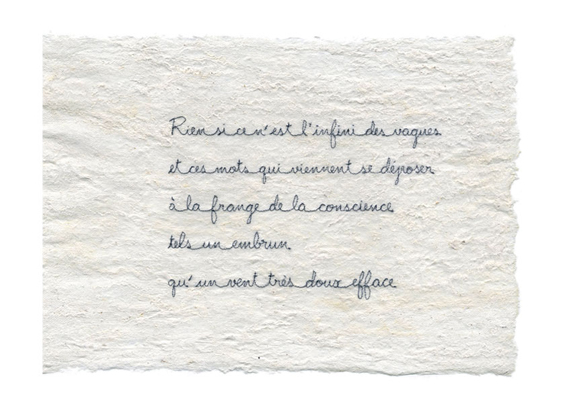 Rien si ce n'est l'infini des vagues
et ces mots qui viennent se déposer
à la frange de la conscience
tels un embrun
qu'un vent très doux efface